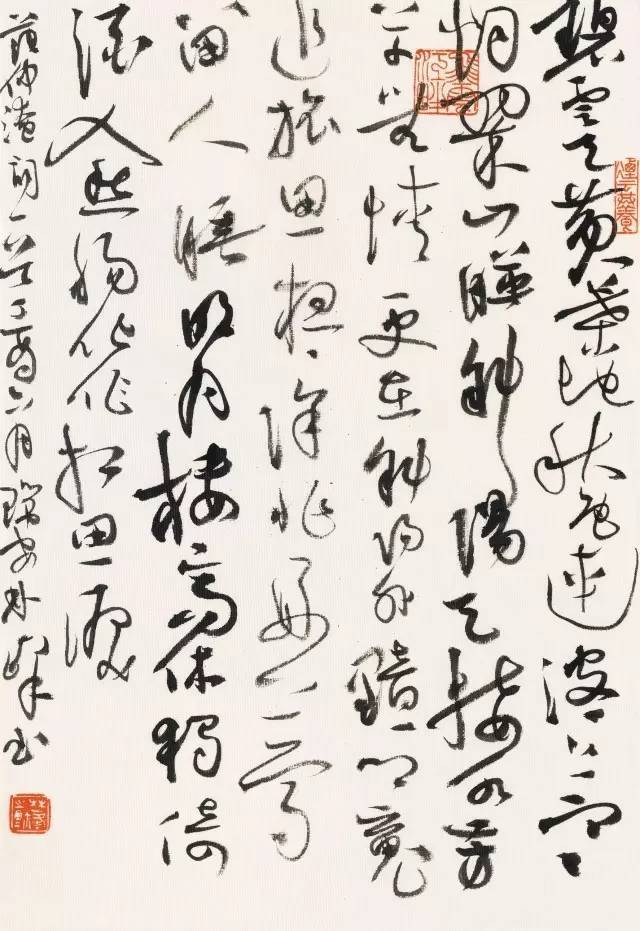 碧雲天黄葉地秋色連波〻上寒
烟翠山映斜陽天接水芳
草無情更在斜陽外黯鄉魂
追旅思夜〻除非好夢
留人睡明月楼高休獨倚
酒入愁腸化作相思淚
范仲淹詞一首丁酉六月瑞安林峰书